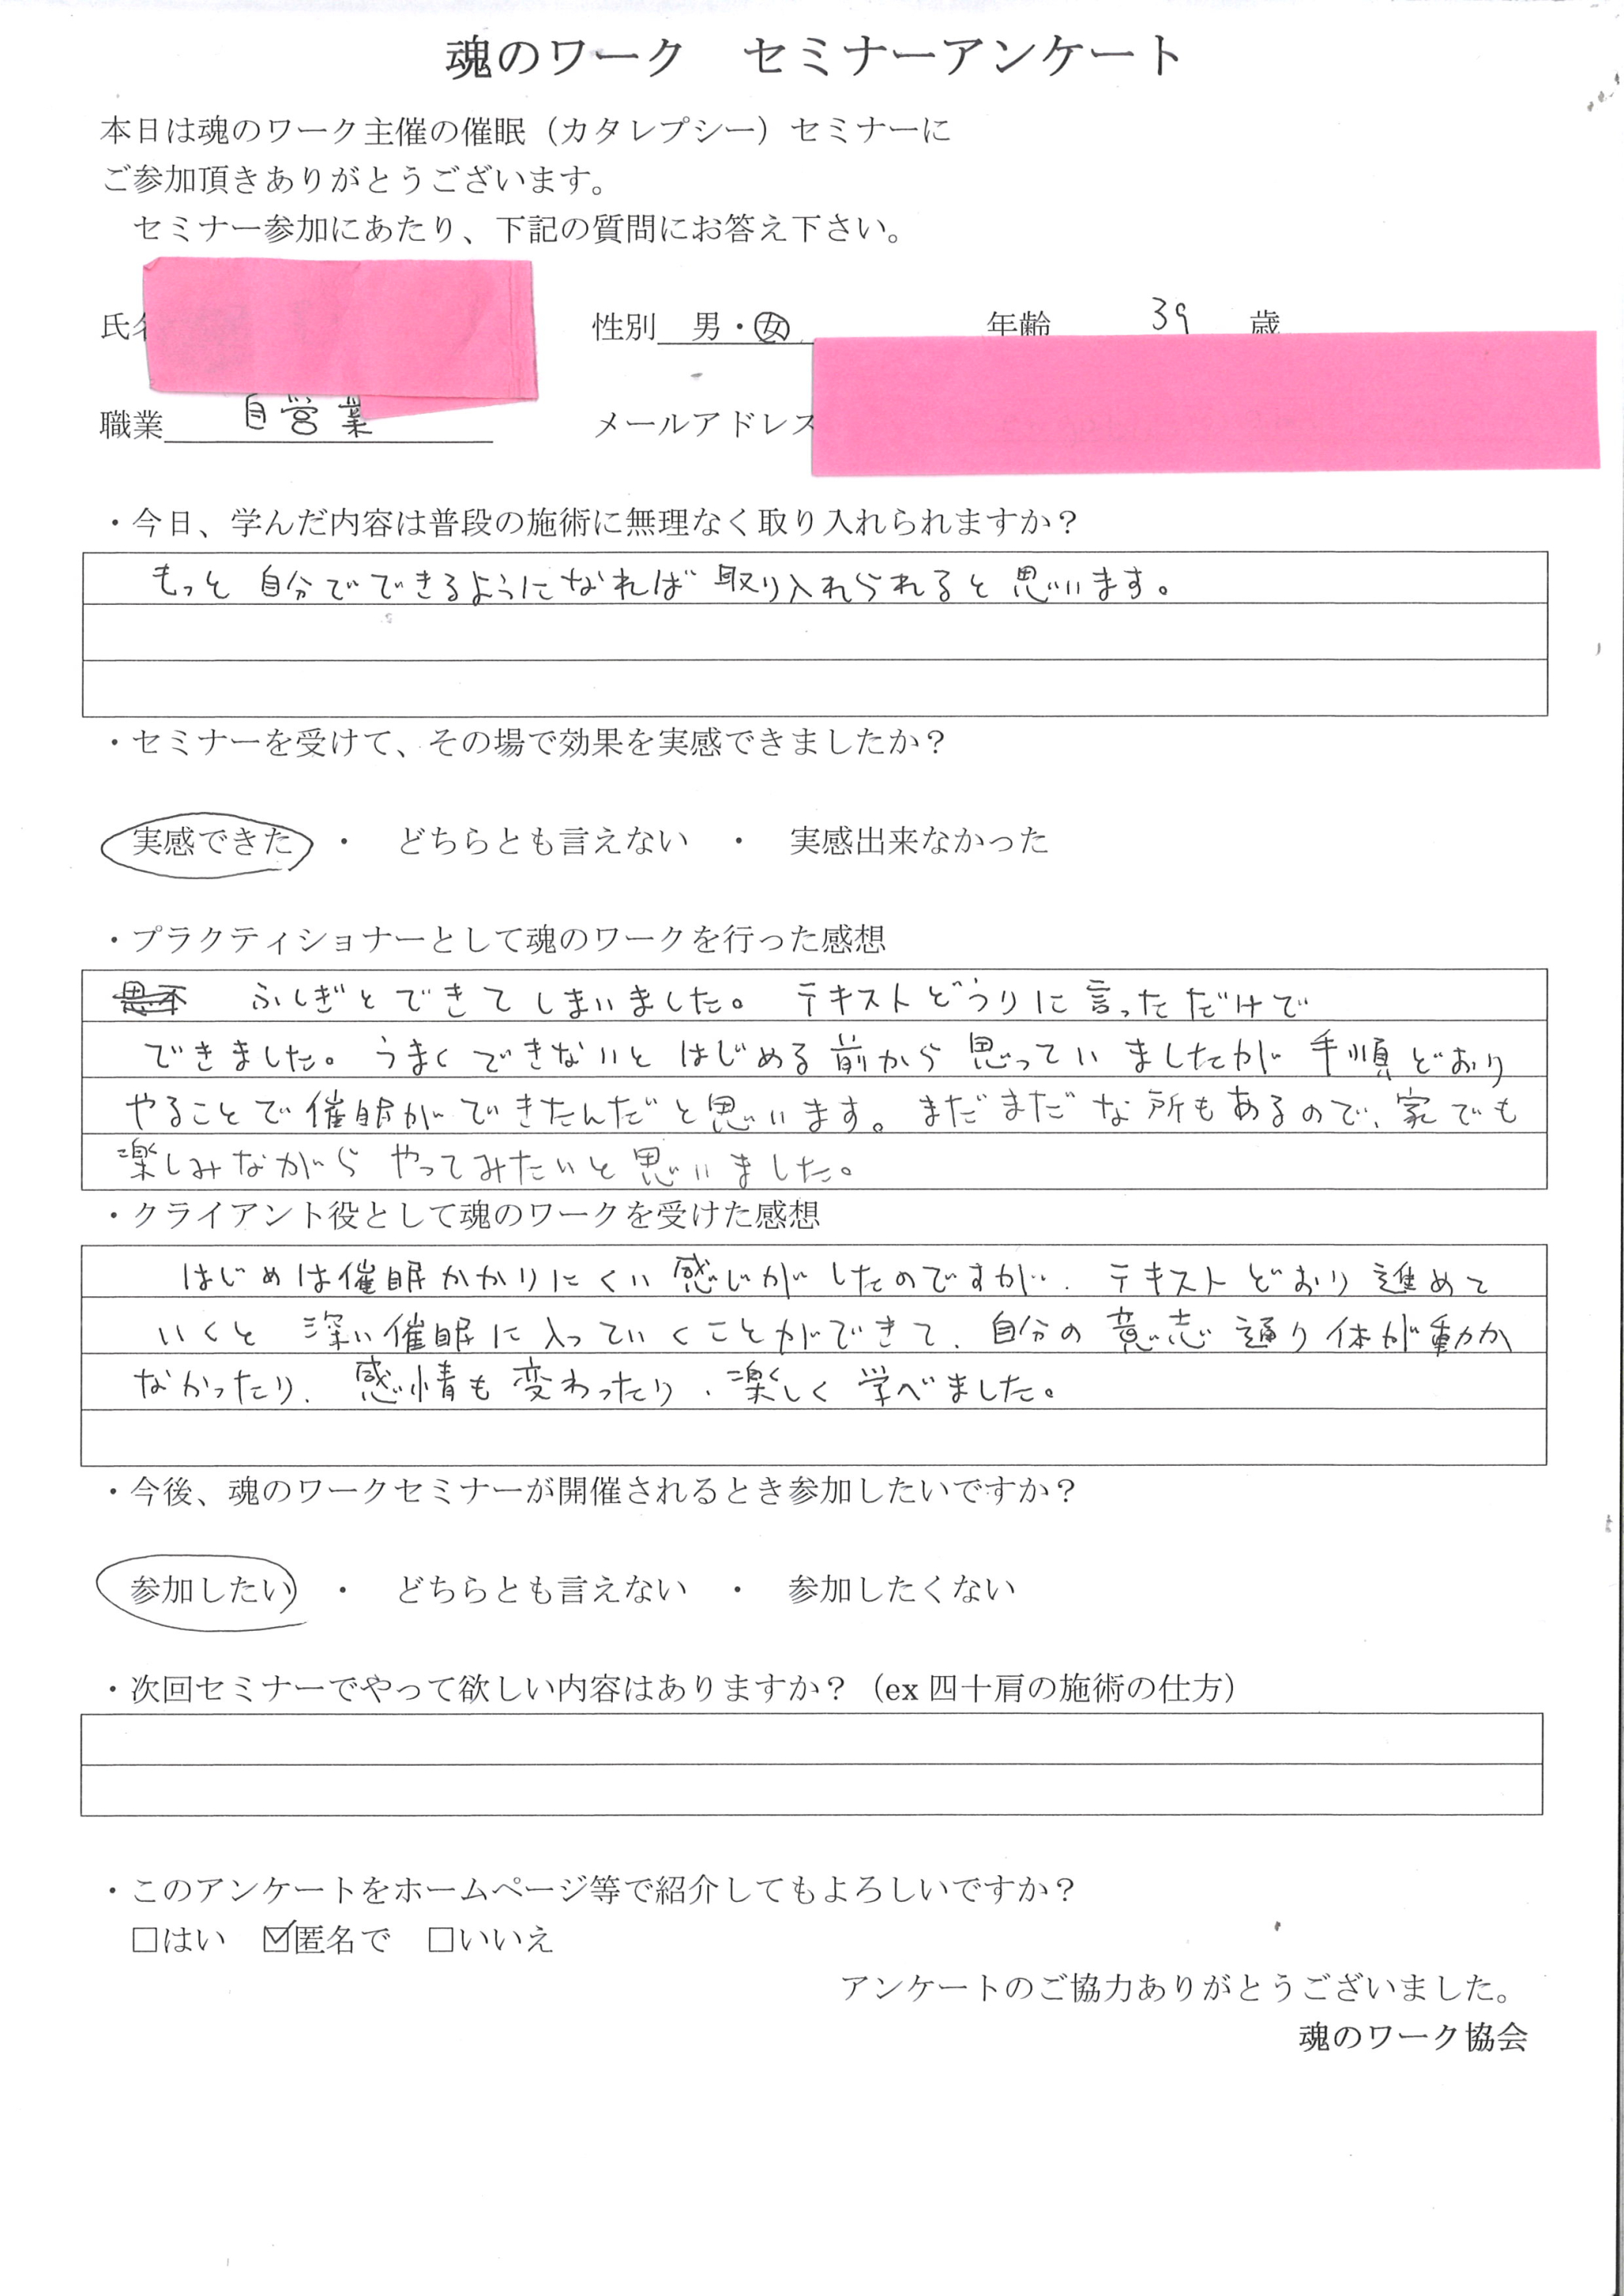 魂のワーク　セミナーアンケート
本日は魂のワーク主催の催眠（カタレプシー）セミナーに
ご参加頂きありがとうございます。
セミナー参加にあたり、下記の質問にお答え下さい。
氏名 性別 男・女 年齢 39 歳
職業 自営業 メールアドレス
・今日、学んだ内容は普段の施術に無理なく取り入れられますか？
もっと自分でできるようになれば取り入れられると思います。
・セミナーを受けて、その場で効果を実感できましたか？
実感できた　・　どちらとも言えない　・　実感出来なかった
・プラクティショナーとして魂のワークを行った感想
ふしぎとできてしまいました。テキストどうりに言っただけで
できました。うまくできないとはじめる前から思っていましたが手順どおり
やることで催眠ができたんだと思います。まだまだな所もあるので、家でも
楽しみながらやってみたいと思いました。
・クライアント役として魂のワークを受けた感想
はじめは催眠かかりにくい感じがしたのですが、テキストどおり進めて
いくと深い催眠に入っていくことができて、自分の意志通り体が動か
なかったり、感情も変わったり、楽しく学べました。
・今後、魂のワークセミナーが開催されるとき参加したいですか？
参加したい　・　どちらとも言えない　・　参加したくない
・次回セミナーでやって欲しい内容はありますか？（ex 四十肩の施術の仕方）
・このアンケートをホームページ等で紹介してもよろしいですか？
□はい　☑匿名で　□いいえ
アンケートのご協力ありがとうございました。
魂のワーク協会